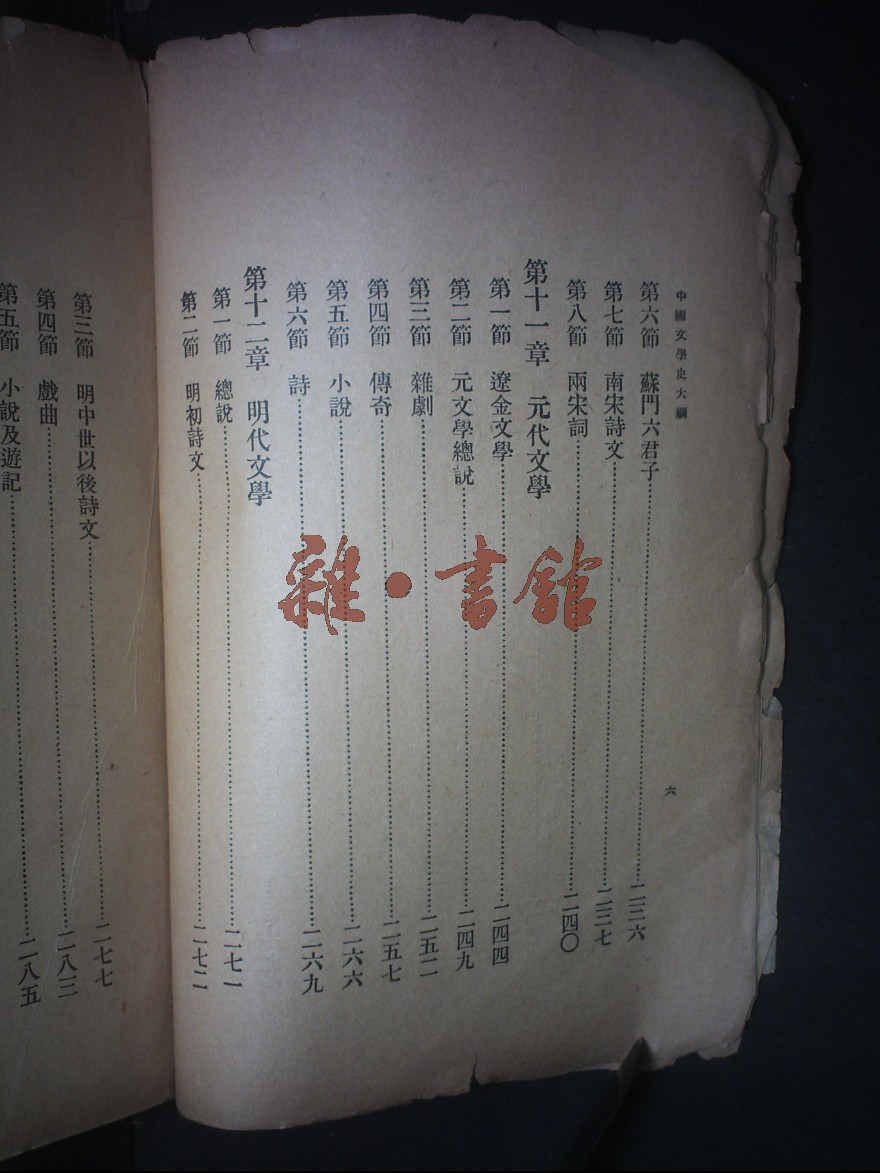 中國文學史大綱
六
第六節 蘇門六君子……二三六
第七節 南宋詩文……二三七
第八節 兩宋詞……二四〇
第十一章 元代文學
第一節 遼金文學……二四四
第二節 元文學總說……二四九
第三節 雜劇……二五二
第四節 傳奇……二五七
第五節 小說……二六六
第六節 詩……二六九
第十二章 明代文學
第一節 總說……二七一
第二節 明初詩文……二七二
第三節 明中世以後詩文……二七七
第四節 戲曲……二八三
第五節 小說及遊記……二八五
雜·書館